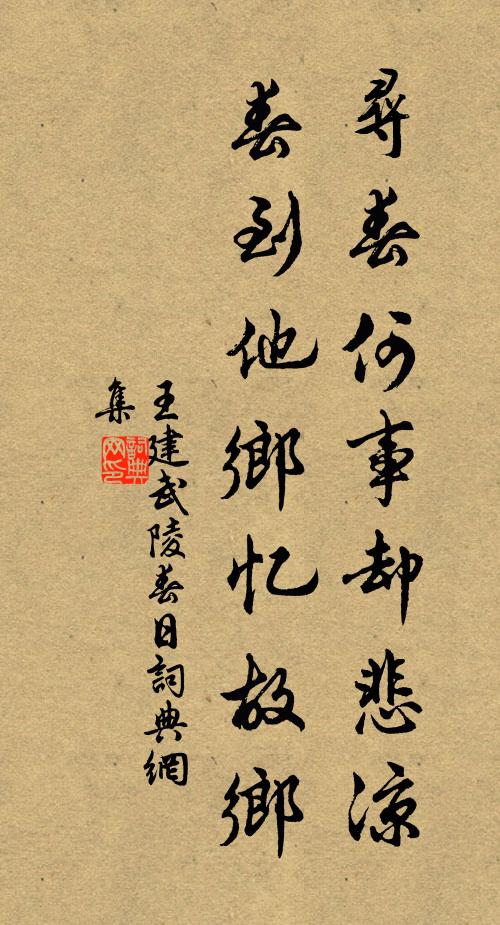 尋春何事却悲涼
春到他鄉忆故鄉
王建武陵春日詞典網
集
詞典網印